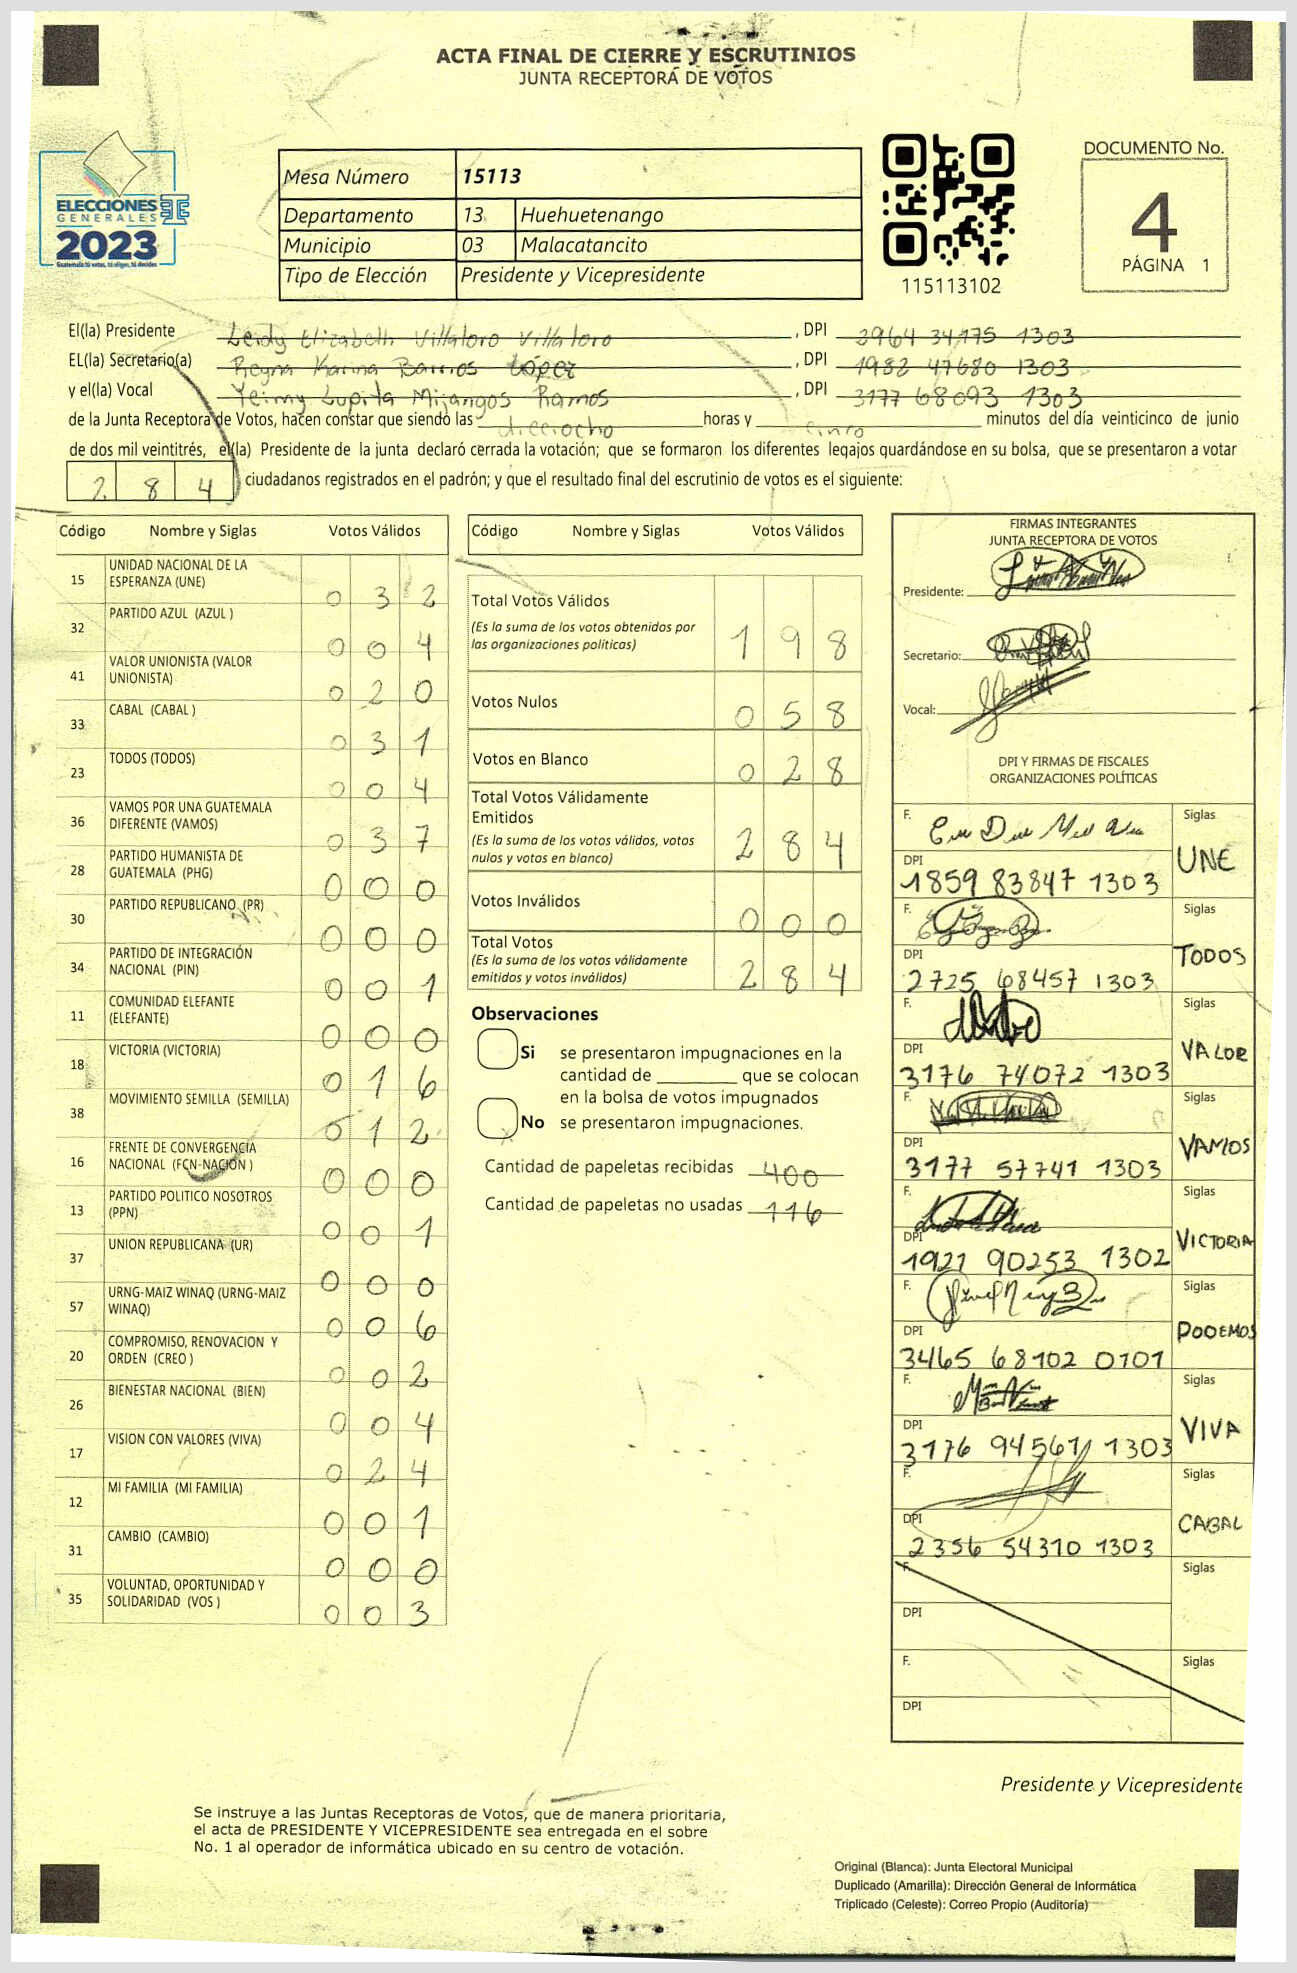 ACTA FINAL DE CIERRE Y ESCRUTINIOS
JUNTA RECEPTORA DE VOTOS
ELECCIONES
GENERALES
2023
Guatemala tú votas, tú eliges, tú decides
Mesa Número 15113
Departamento 13 Huehuetenango
Municipio 03 Malacatancito
Tipo de Elección Presidente y Vicepresidente
115113102
DOCUMENTO No.
4
PÁGINA 1
El(la) Presidente Leidy Elizabeth Villatoro Villatoro , DPI 2964 34175 1303
EL(la) Secretario(a) Reyna Karina Barrios López , DPI 1982 47680 1303
y el(la) Vocal Yeimy Lupita Mijangos Ramos , DPI 3177 68093 1303
de la Junta Receptora de Votos, hacen constar que siendo las dieciocho horas y cinco minutos del día veinticinco de junio
de dos mil veintitrés, el(la) Presidente de la junta declaró cerrada la votación; que se formaron los diferentes legajos quardándose en su bolsa, que se presentaron a votar
2 8 4 ciudadanos registrados en el padrón; y que el resultado final del escrutinio de votos es el siguiente:
Código Nombre y Siglas Votos Válidos
15 UNIDAD NACIONAL DE LA ESPERANZA (UNE) 0 3 2
32 PARTIDO AZUL (AZUL ) 0 0 4
41 VALOR UNIONISTA (VALOR UNIONISTA) 0 2 0
33 CABAL (CABAL ) 0 3 1
23 TODOS (TODOS) 0 0 4
36 VAMOS POR UNA GUATEMALA DIFERENTE (VAMOS) 0 3 7
28 PARTIDO HUMANISTA DE GUATEMALA (PHG) 0 0 0
30 PARTIDO REPUBLICANO (PR) 0 0 0
34 PARTIDO DE INTEGRACIÓN NACIONAL (PIN) 0 0 1
11 COMUNIDAD ELEFANTE (ELEFANTE) 0 0 0
18 VICTORIA (VICTORIA) 0 1 6
38 MOVIMIENTO SEMILLA (SEMILLA) 0 1 2
16 FRENTE DE CONVERGENCIA NACIONAL (FCN-NACION ) 0 0 0
13 PARTIDO POLITICO NOSOTROS (PPN) 0 0 1
37 UNION REPUBLICANA (UR) 0 0 0
57 URNG-MAIZ WINAQ (URNG-MAIZ WINAQ) 0 0 6
20 COMPROMISO, RENOVACION Y ORDEN (CREO ) 0 0 2
26 BIENESTAR NACIONAL (BIEN) 0 0 4
17 VISION CON VALORES (VIVA) 0 2 4
12 MI FAMILIA (MI FAMILIA) 0 0 1
31 CAMBIO (CAMBIO) 0 0 0
35 VOLUNTAD, OPORTUNIDAD Y SOLIDARIDAD (VOS ) 0 0 3
Código Nombre y Siglas Votos Válidos
Total Votos Válidos 1 9 8
(Es la suma de los votos obtenidos por
las organizaciones políticas)
Votos Nulos 0 5 8
Votos en Blanco 0 2 8
Total Votos Válidamente
Emitidos 2 8 4
(Es la suma de los votos válidos, votos
nulos y votos en blanco)
Votos Inválidos 0 0 0
Total Votos 2 8 4
(Es la suma de los votos válidamente
emitidos y votos inválidos)
Observaciones
Si se presentaron impugnaciones en la
cantidad de ________ que se colocan
en la bolsa de votos impugnados
No se presentaron impugnaciones.
Cantidad de papeletas recibidas 400
Cantidad de papeletas no usadas 116
FIRMAS INTEGRANTES
JUNTA RECEPTORA DE VOTOS
Presidente:
Secretario:
Vocal:
DPI Y FIRMAS DE FISCALES
ORGANIZACIONES POLÍTICAS
F. Siglas
DPI 1859 83847 1303 UNE
F. Siglas
DPI 2725 68457 1303 TODOS
F. Siglas
DPI 3176 74072 1303 VALOR
F. Siglas
DPI 3177 57741 1303 VAMOS
F. Siglas
DPI 1921 90253 1302 VICTORIA
F. Siglas
DPI 3465 68102 0101 PODEMOS
F. Siglas
DPI 3176 94561 1303 VIVA
F. Siglas
DPI 2356 54310 1303 CABAL
F. Siglas
DPI
F. Siglas
DPI
Presidente y Vicepresidente
Se instruye a las Juntas Receptoras de Votos, que de manera prioritaria,
el acta de PRESIDENTE Y VICEPRESIDENTE sea entregada en el sobre
No. 1 al operador de informática ubicado en su centro de votación.
Original (Blanca): Junta Electoral Municipal
Duplicado (Amarilla): Dirección General de Informática
Triplicado (Celeste): Correo Propio (Auditoría)